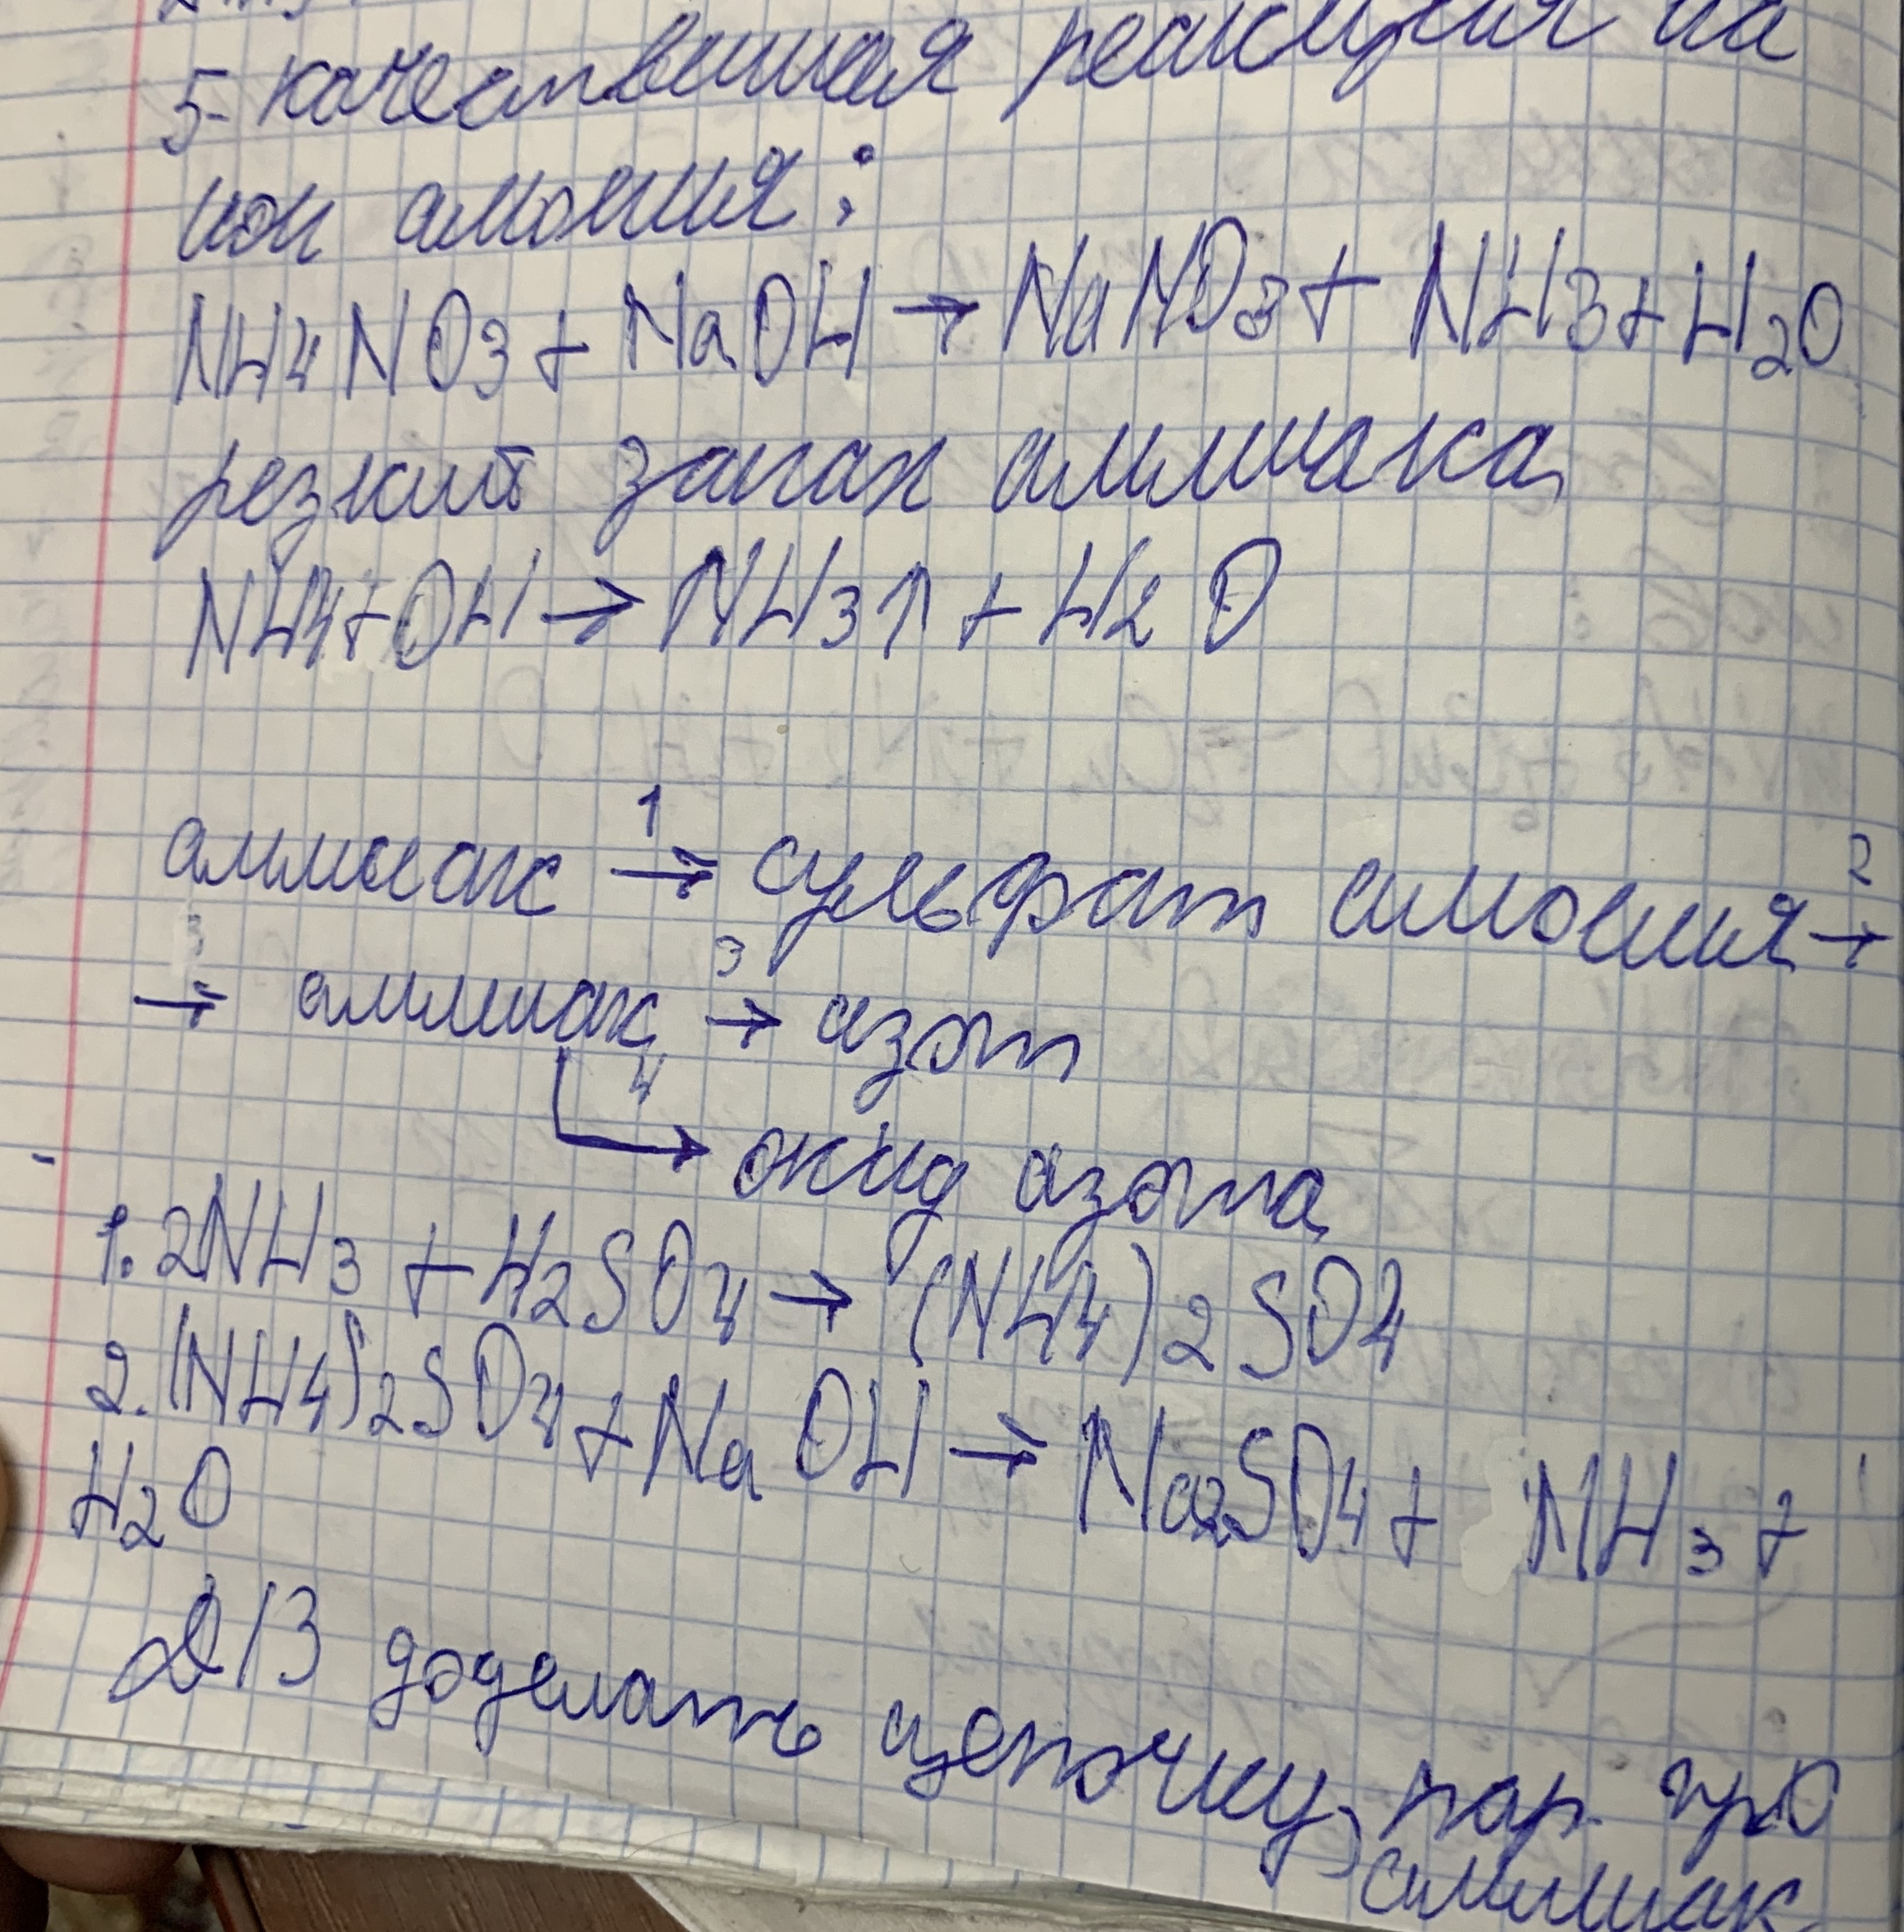 5- качественная реакция на
ион амония:
NH4NO3 + NaOH → NaNO3 + NH3 + H2O
резкий запах аммиака
NH4 + OH → NH3↑ + H2O
аммиак 1→ сульфат амония 2→
→ аммиак 3→ азот
4
→ оксид азота
1. 2NH3 + H2SO4 → (NH4)2SO4
2. (NH4)2SO4 + NaOH → Na2SO4 + NH3 +
H2O
Д/З доделать цепочку, пар. про
аммиак